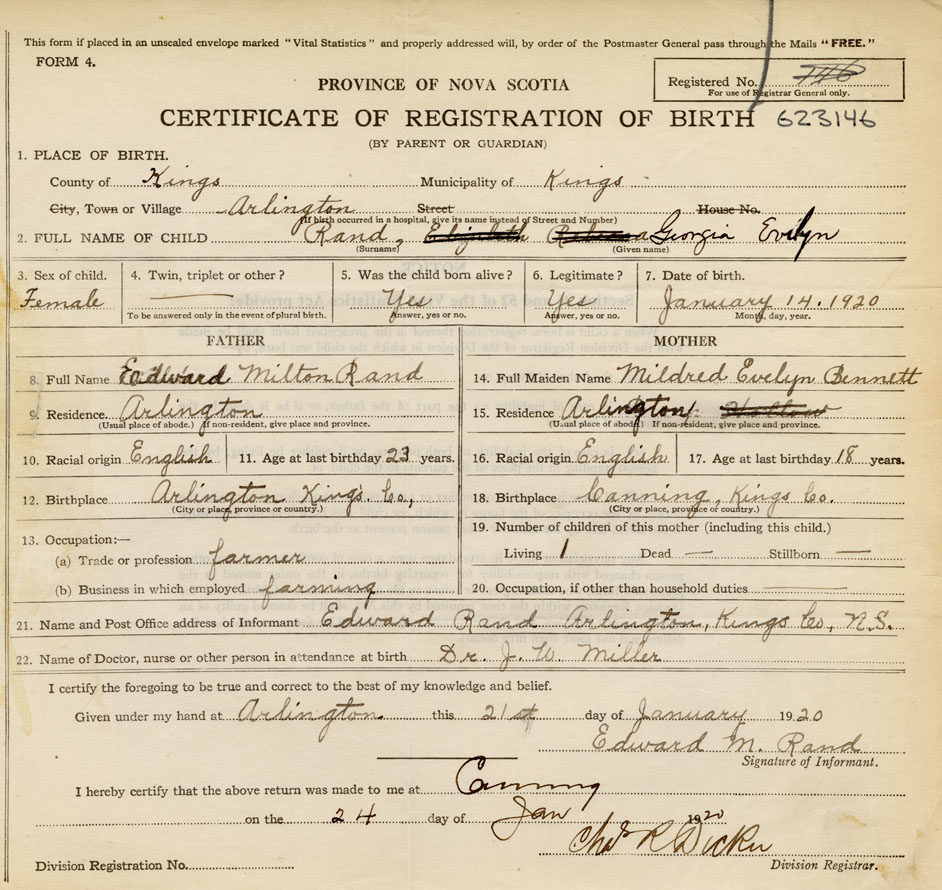 This form if placed in an unsealed envelope marked "Vital Statistics" and properly addressed will, by order of the Postmaster General pass through the Mails "FREE."
FORM 4.
Registered No. 746
For use of Registrar General only.
PROVINCE OF NOVA SCOTIA
CERTIFICATE OF REGISTRATION OF BIRTH 623146
(BY PARENT OR GUARDIAN)
1. PLACE OF BIRTH.
County of Kings Municipality of Kings
City, Town or Village Arlington Street House No.
(If birth occurred in a hospital, give its name instead of Street and Number)
2. FULL NAME OF CHILD Rand, Elizabeth Rebecca Georgia Evelyn
(Surname) (Given name)
3. Sex of child. 4. Twin, triplet or other? 5. Was the child born alive? 6. Legitimate? 7. Date of birth.
Female — Yes Yes January 14. 1920
To be answered only in the event of plural birth. Answer, yes or no. Answer, yes or no. Month, day, year.
FATHER MOTHER
8. Full Name Edward Milton Rand 14. Full Maiden Name Mildred Evelyn Bennett
9. Residence. Arlington 15. Residence Arlington
(Usual place of abode.) If non-resident, give place and province. (Usual place of abode) If non-resident, give place and province.
10. Racial origin English 11. Age at last birthday 23 years. 16. Racial origin English 17. Age at last birthday 18 years.
12. Birthplace Arlington Kings Co, 18. Birthplace Canning, Kings Co.
(City or place, province or country.) (City or place, province or country.)
13. Occupation:— 19. Number of children of this mother (including this child.)
(a) Trade or profession farmer Living 1 Dead — Stillborn —
(b) Business in which employed farming 20. Occupation, if other than household duties —
21. Name and Post Office address of Informant Edward Rand Arlington, Kings Co, N.S.
22. Name of Doctor, nurse or other person in attendance at birth Dr. J. W. Miller
I certify the foregoing to be true and correct to the best of my knowledge and belief.
Given under my hand at Arlington this 21st day of January 1920
Edward M. Rand
Signature of Informant.
I hereby certify that the above return was made to me at Canning
on the 24 day of Jan 1920
Chas R Dickie
Division Registration No. Division Registrar.